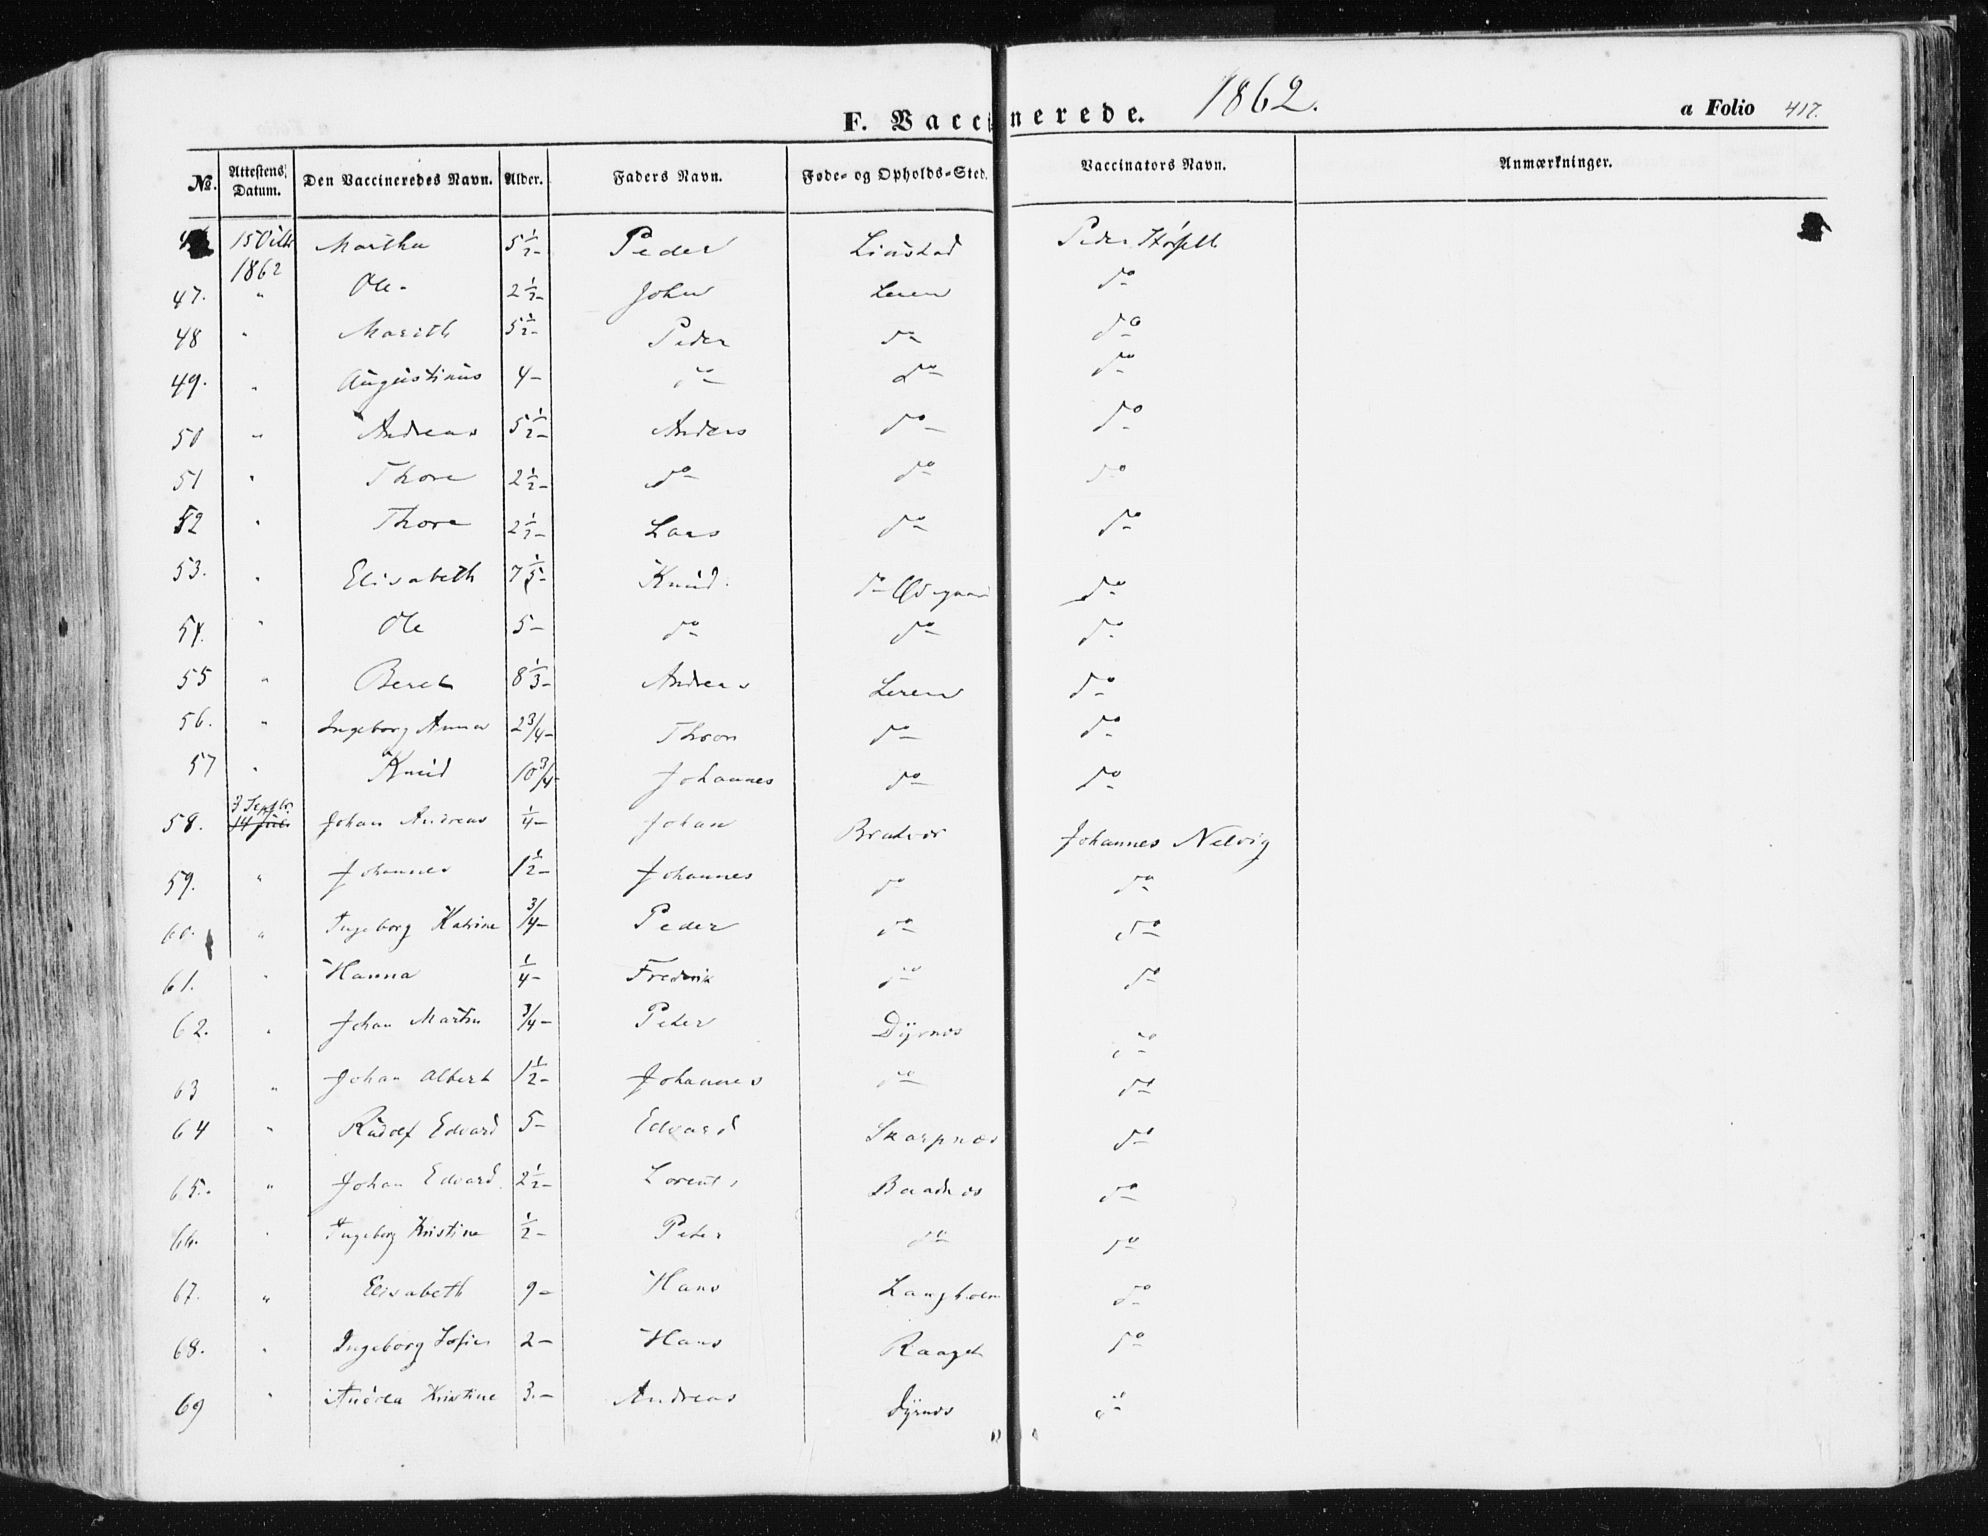 F. Vaccinerede. 1862. a Folio 417.
No. Attestens Datum. Den Vaccineredes Navn. Alder. Faders Navn. Føde- og Opholds-Sted. Vaccinators Navn. Anmærkninger.
15 1862 Martha 5 1/2- Peder Linstad Peder
47. " Ole 2 1/2- John Leren do
48 " Marith 5 1/2- Peder do do
49. " Augustinus 4- do do do
50 " Andreas 5 1/2- Anders do do
51 " Thore 2 1/2- do do do
52 " Thore 2 1/2- Lars do do
53. " Elisabeth 7 1/5- Knud do do
54. " Ole 5- do do do
55 " Beret 8 1/3- Andreas Leren do
56. " Ingeborg Anna 2 3/4- Thron do do
57 " Knud 10 3/4- Johannes do do
58. 3 Septbr 14 Juli Johan Andreas 1/4- Johan Bratvær Johannes Nelvig
59. " Johannes 1 1/2- Johannes do do
60. " Ingeborg Katrine 3/4- Peder do do
61. " Hanna 1/4- Fredrik do do
62. " Johan Martin 3/4- Peter Dyrnes do
63 " Johan Albert 1 1/2- Johannes do do
64 " Rudolf Edvard 5- Edvard Skarpnes do
65. " Johan Edvard 2 1/2- Lorents Baadnes do
66. " Ingeborg Kristine 1/2- Peter do do
67. " Elisabeth 9- Hans Langholm do
68. " Ingeborg Sofie 2- Hans do
69 " Andrea Kristine 3.- Andreas Dyrnes do